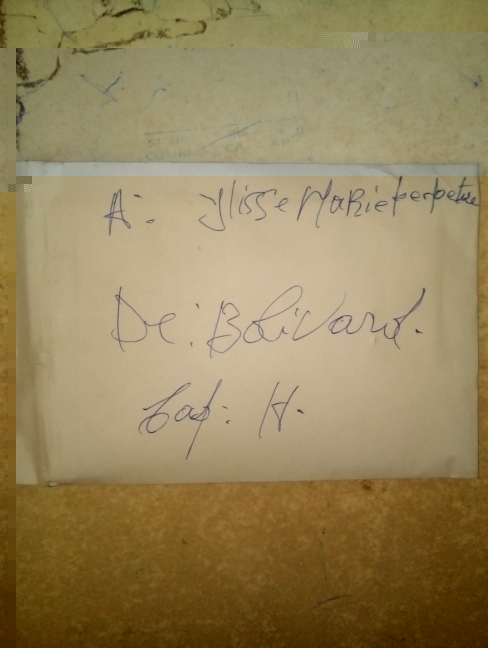 A: Ylisse Marie perpetue
De: Bolivard.
Cap: H.